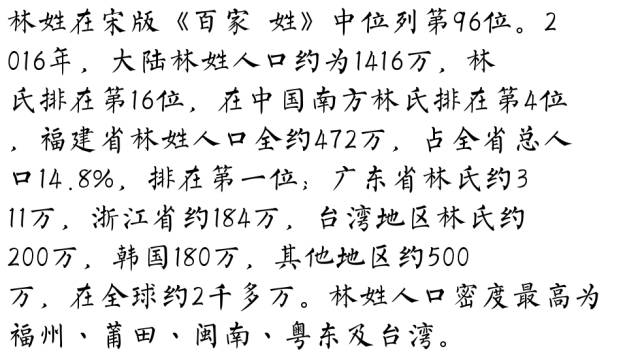 林姓在宋版《百家 姓》中位列第96位。2
016年，大陆林姓人口约为1416万，林
氏排在第16位，在中国南方林氏排在第4位
，福建省林姓人口全约472万，占全省总人
口14.8%，排在第一位；广东省林氏约3
11万，浙江省约184万，台湾地区林氏约
200万，韩国180万，其他地区约500
万，在全球约2千多万。林姓人口密度最高为
福州、莆田、闽南、粤东及台湾。